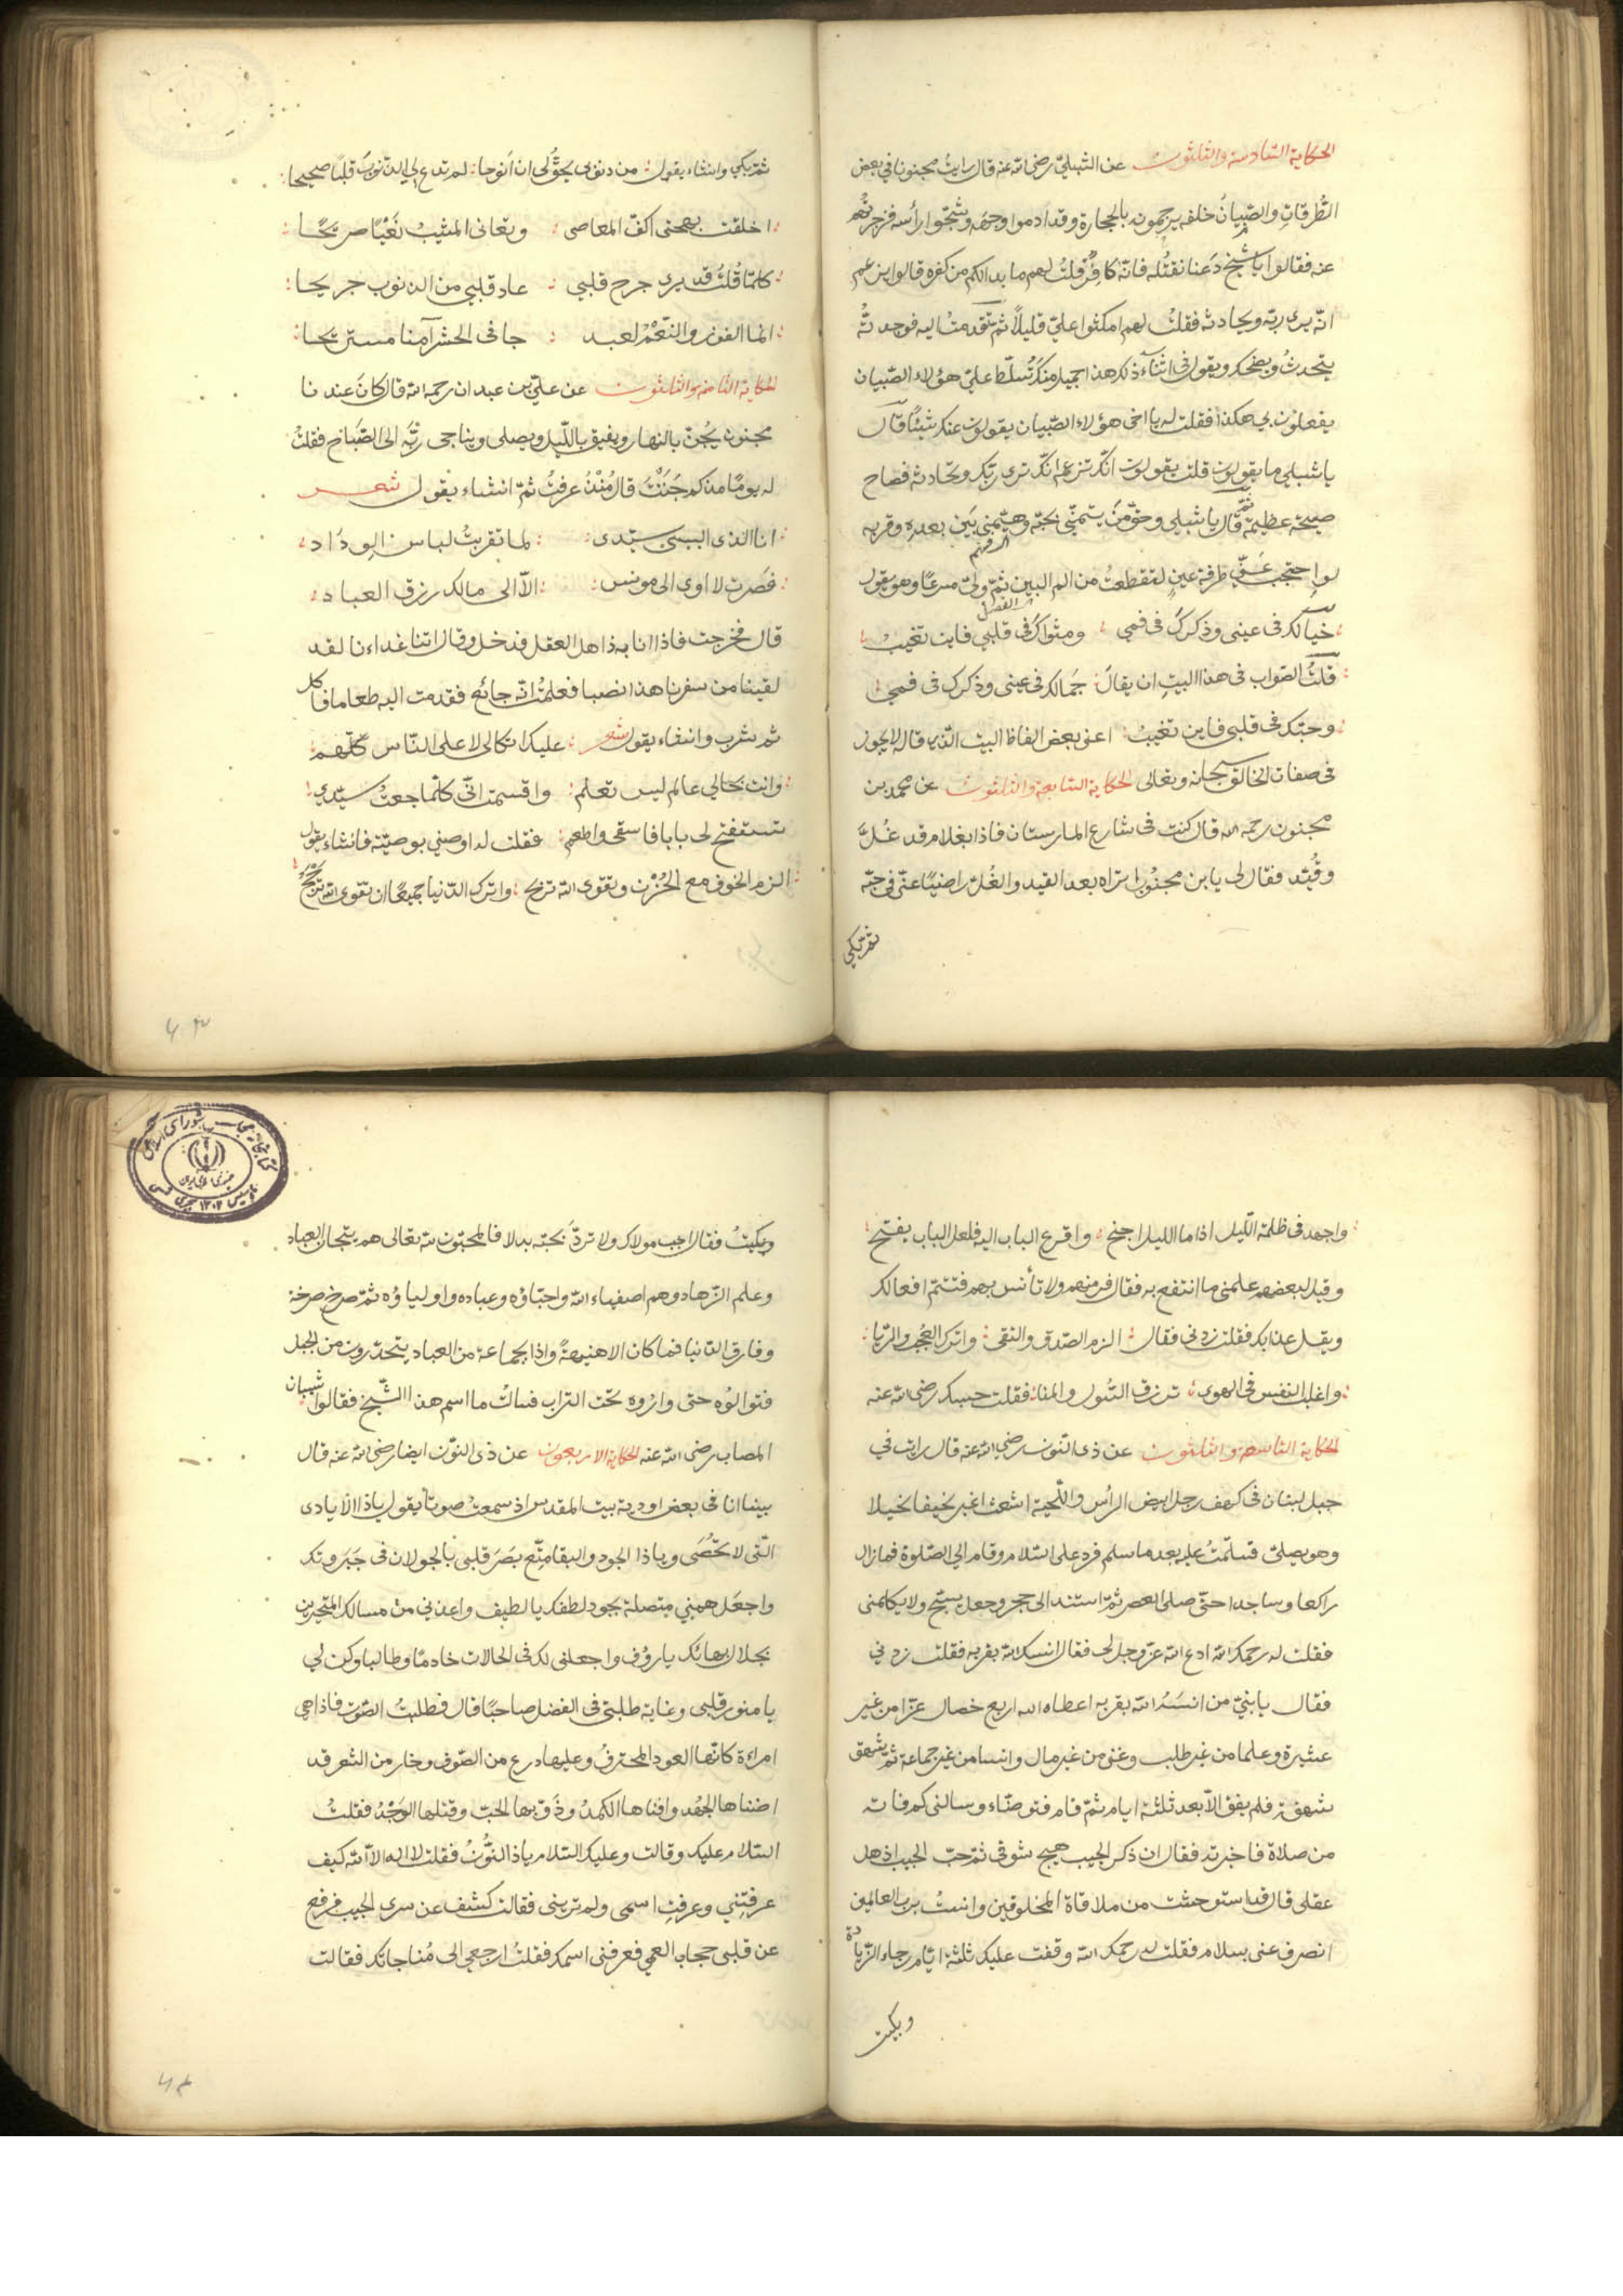 الحكاية السادسة والثلثون عن الشبلي رضى الله عنه قال رايت مجنونا في بعض
الطُرقاتِ والصّبيانُ خلفه يرجمونه بالحجارة وقد ادموا وجهه وشجّوا رأسه فزجرتهم
عنه فقالوا يا شيخ دَعنا نقتُله فانّه كافِرٌ قلتُ لهم ما بدا لكم من كفره قالوا يزعم
انّه يرى ربّه ويحادثه فقلتُ لهم امكثوا عليّ قليلاً ثم تقدمتُ اليه فوجدتُه
يتحدثُ ويضحك ويقول فى اثناء ذكر هذا جميل منك تُسلّط علىّ هؤلاء الصّبيان
يفعلون بي هكذا فقلت له يا اخى هؤلاء الصّبيان يقولون عنك شيئًا قال
يا شبلي ما يقولون قلت يقولون انّك تزعم انّك ترى ربّك وتحادثه فصاح
صيحة عظيمة ثمّ قال يا شبلى وحقّ مَن يتمنّي بحبّه وهيّمني بَين بعدِه وقربه
لو احتجب عنّى طرفةَ عينٍ لتقطعتُ من الم البين ثمّ ولّى مسرعًا وهو يقول
خيالك فى عينى وذكرك فى فمي ومثواك فى قلبي فاين تغيب
قلتُ الصّواب فى هذا البيتِ ان يقالَ: جَمالك فى عينى وذكرك فى فمي
وحبّك فى قلبى فاين تغيبُ: اعنى بعض الفاظ البيت الّذى قاله لا يجوز
فى صفات الخالق سبحانه وتعالى الحكاية السابعة والثلثون عن محمد بن
محبنون رحمه الله قال كنت فى شارع المارستان فاذا بغلام قد غُلَّ
وقُيِّد فقال لى يا بن محبنون اتراه بعد القيد والغُلّ راضيًا عنّى فى حبّه
ثم بكى
ثمّ بكى وانشاء يقول: من ذنوبى يحقُّ لى ان انوحا: لم تدع لى الذنوبَ قلبًا صحيحا:
اخلقت بهجتى اكفّ المعاصى: ونعانى المشيبُ نَعْيًا صريحًا:
كلمّا قُلتُ قد برى جرح قلبي: عاد قلبي من الذنوب جريحا:
انما الفوز والنّعِيْمُ لعبد: جا فى الحشر آمنا مستريحا:
الحكاية الثامنة والثلثون عن علىّ بن عبدان رحمه الله قال كانَ عندنا
مجنون يُجنّ بالنهار ويفيق بالّليل ويصلى ويناجى ربَّه الى الصَّباح فقلتُ
له يومًا مذ كم جُنِنْتَ قال مُنْذُ عرفتُ ثمّ انشاء يقول شعر
انا الذى البسنى سيّدى: لما تقربتُ لباس الوِدَاد:
فصَرت لا اوى الى مونس: الاّ الى مالك رزق العباد:
قال فخرجت فاذا انا به ذاهل العقل فدخل وقال اتنا غداءنا لقد
لقينا من سفرنا هذا نصبا فعلمتُ انّه جائع فقدمت اليه طعاما فاكل
ثم شرب وانشاء يقول شعر: عليك اتكالى لا على النّاس كلّهم:
وانت بحالي عالم ليس تعلم: واقسمت انّى كلّما جعتُ سيّدي:
ستفتح لى بابا فاسقى واطعم: فقلت له اوصني بوصيّة فانشاء يقول
الزم الخوف مع الحُزْن وتقوى الله تربح: واترك الدّنيا جميعًا ان تقوى الله تُرجِّحُ
واجهد فى ظلمة الّليل اذا ما الليل اجنح: واقرع الباب اليه فلعل الباب يفتح:
وقيل لبعضهم علمني ما انتفع به فقال فر منهم ولا تأنس بهم فتتمّ افعالك
ويقل عذابك فقلت زدنى فقال: الزم الصّدق والتقى: واترك العُجب والرّيا:
واغلب النفس فى الهوى: ترزق السُول والمنا: فقلت حسبك رضى الله عنه
الحكاية التاسعة والثلثون عن ذى النّون رضى الله عنه قال رايت في
جبل لبنان فى كهف رجلا ابيض الرأس واللّحية اشعث اغبر نحيفا نحيلا
وهو يصلى فسلّمتُ عليه بعد ما سلم فرد علىّ السّلام وقام الى الصّلوة فما زال
راكعا وساجدا حتّى صلى العصر ثمّ استند الى حجر وجعل يسبّح ولا يكلمنى
فقلت له رحمك الله ادع الله عزّ وجل لى فقال انسك الله بقربه فقلت زدني
فقال يا بنيّ من انسَهُ الله بقربه اعطاه الله اربع خصال عزّا من غير
عشيرة وعلما من غير طلب وغنى من غير مال وانسا من غير جماعة ثمّ شهق
شهقة فلم يفق الاّ بعد ثلثة ايام ثمّ قام فتوضّاء وسالنى كم فاته
من صلاة فاخبرته فقال ان ذكر الحبيب هيج شوقى ثمّ حبّ الحبيب اذهل
عقلى قال قد استوحشت من ملاقاة المخلوقين وانستُ برب العالمين
انصرف عنى بسلام فقلت له رحمك الله وقفت عليك ثلثة ايّام رجاء الزّيادة
وبكيت
وبكيتُ فقال احبب مولاك ولا ترد بحبّه بدلا فالمحبّون لله تعالى هم تيجان العباد
وعلم الزّهاد وهم اصفياء الله واحبّاؤه وعباده واولياؤه ثمّ صرخ صرخة
وفارق الدّنيا فما كان الا هنيهةً واذا بجماعة من العباد يتحدّرون من الجبل
فتوالوُه حتى واروه تحت التراب فسالتُ ما اسم هذا الشّيخ فقالوا شيبان
المصاب رضى الله عنه الحكاية الاربعون عن ذى النوّن ايضا رضى الله عنه قال
بينما انا فى بعض اودية بيت المقدس اذ سمعت صوتاً يقول يا ذا الايادى
الّتى لا تحُصَى ويا ذا الجود والبقا متِّع بصَرَ قلبى بالجولان فى جَبَروتك
واجعَل همتي متصلة بجود لطفك يا لطيف واعذني من مسالك المتحيرين
بجلال بهائك يا روف واجعلنى لك فى الحالات خادمًا وطالبا وكن لي
يا منور قلبى وغاية طلبتى فى الفضل صاحبًا قال فطلبتُ الصّوت فاذا هي
امراءة كانّها العود المحترقُ وعليها درع من الصّوف وخمار من الشعر قد
اضناها الجَهْد وافناها الكمدُ وذَوّبها الحبّ وقتلها الوَجْدُ فقلتُ
السّلام عليك وقالت وعليك السّلام يا ذا النّونُ فقلت لا اله الاّ الله كيف
عرفتِني وعرفتِ اسمى ولم ترينى فقالت كشف عن سرى الحبيب فرفع
عن قلبى حجاب العمي فعرفنى اسمك فقلتُ ارجعي الى مُناجاتك فقالت